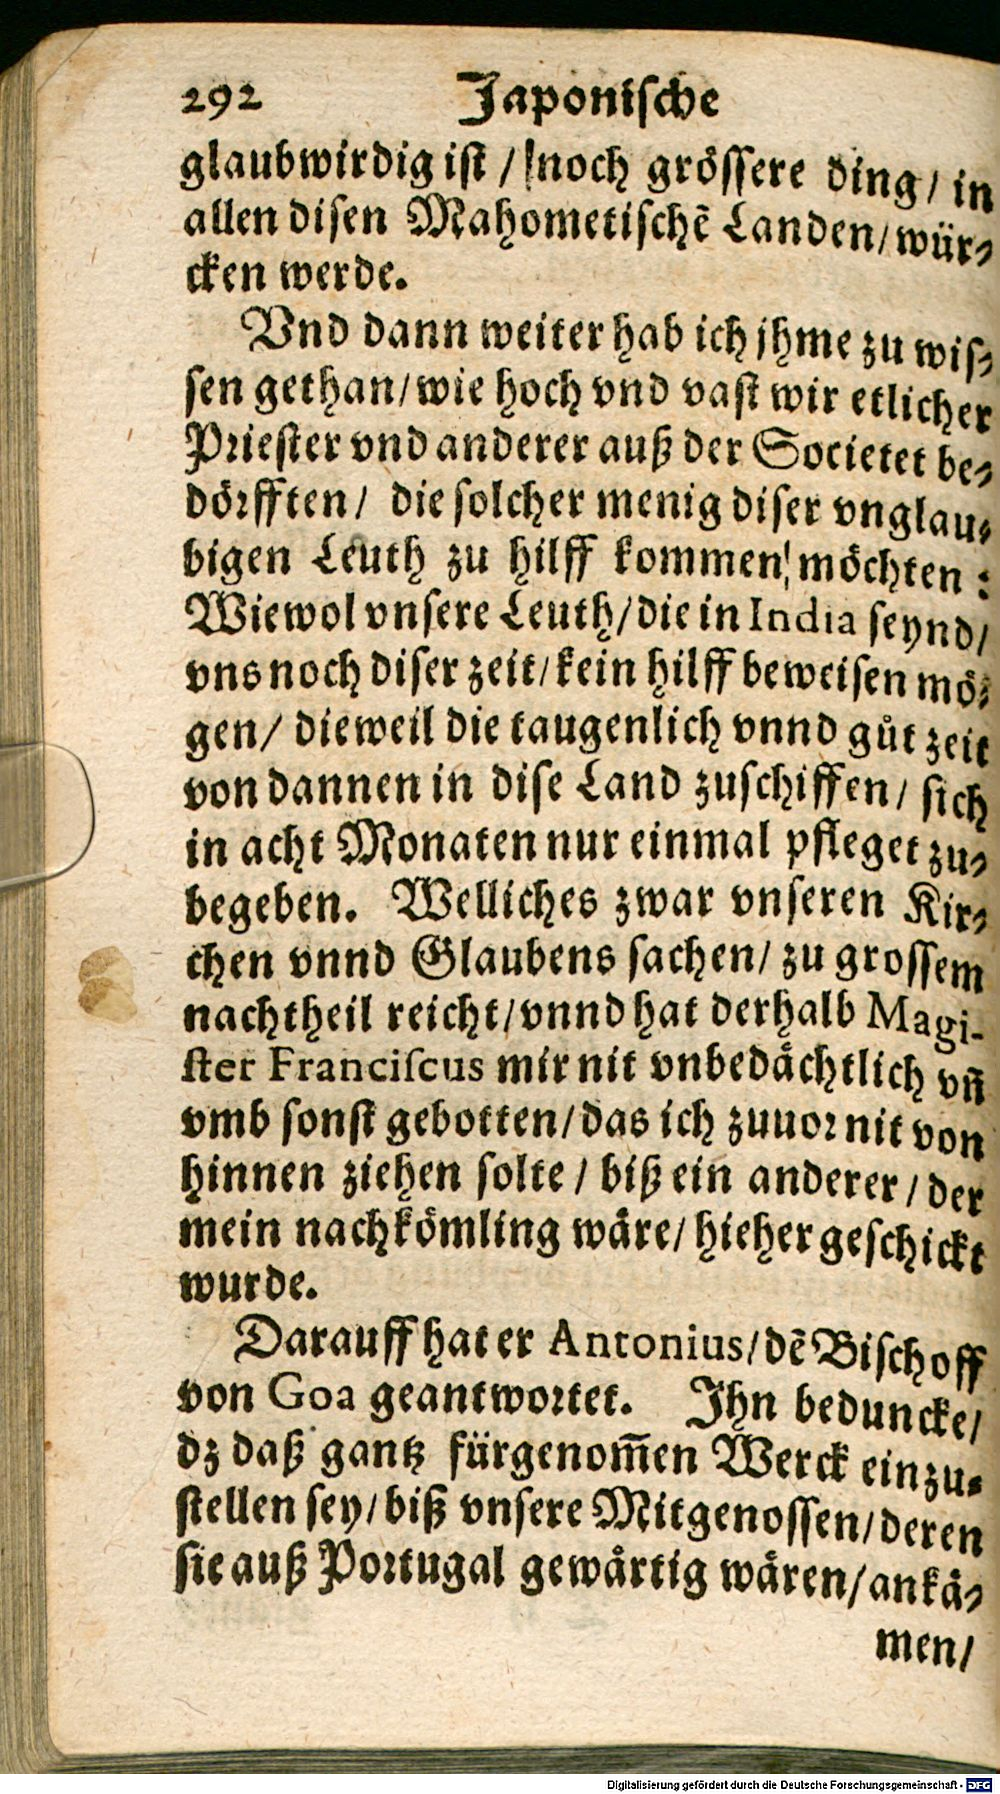 292 Japonische
glaubwirdig ist / noch grössere ding / in
allen disen Mahometischẽ Landen / wür-
cken werde.
Vnd dann weiter hab ich jhme zu wis-
sen gethan / wie hoch vnd vast wir etlicher
Priester vnd anderer auß der Societet be-
dörfften / die solcher menig diser vnglau-
bigen Leuth zu hilff kommen möchten :
Wiewol vnsere Leuth / die in India seynd /
vns noch diser zeit / kein hilff beweisen mö-
gen / dieweil die taugenlich vnnd gůt zeit
von dannen in dise Land zuschiffen / sich
in acht Monaten nur einmal pfleget zu-
begeben. Welliches zwar vnseren Kir-
chen vnnd Glaubens sachen / zu grossem
nachtheil reicht / vnnd hat derhalb Magi-
ster Franciscus mir nit vnbedåchtlich vñ
vmb sonst gebotten / das ich zuuor nit von
hinnen ziehen solte / biß ein anderer / der
mein nachkömling wåre / hieher geschickt
wurde.
Darauff hat er Antonius / dẽ Bischoff
von Goa geantwortet. Jhn beduncke /
dz daß gantz fürgenom̃en Werck einzu-
stellen sey / biß vnsere Mitgenossen / deren
sie auß Portugal gewårtig wåren / ankå-
men /
Digitalisierung gefördert durch die Deutsche Forschungsgemeinschaft - DFG